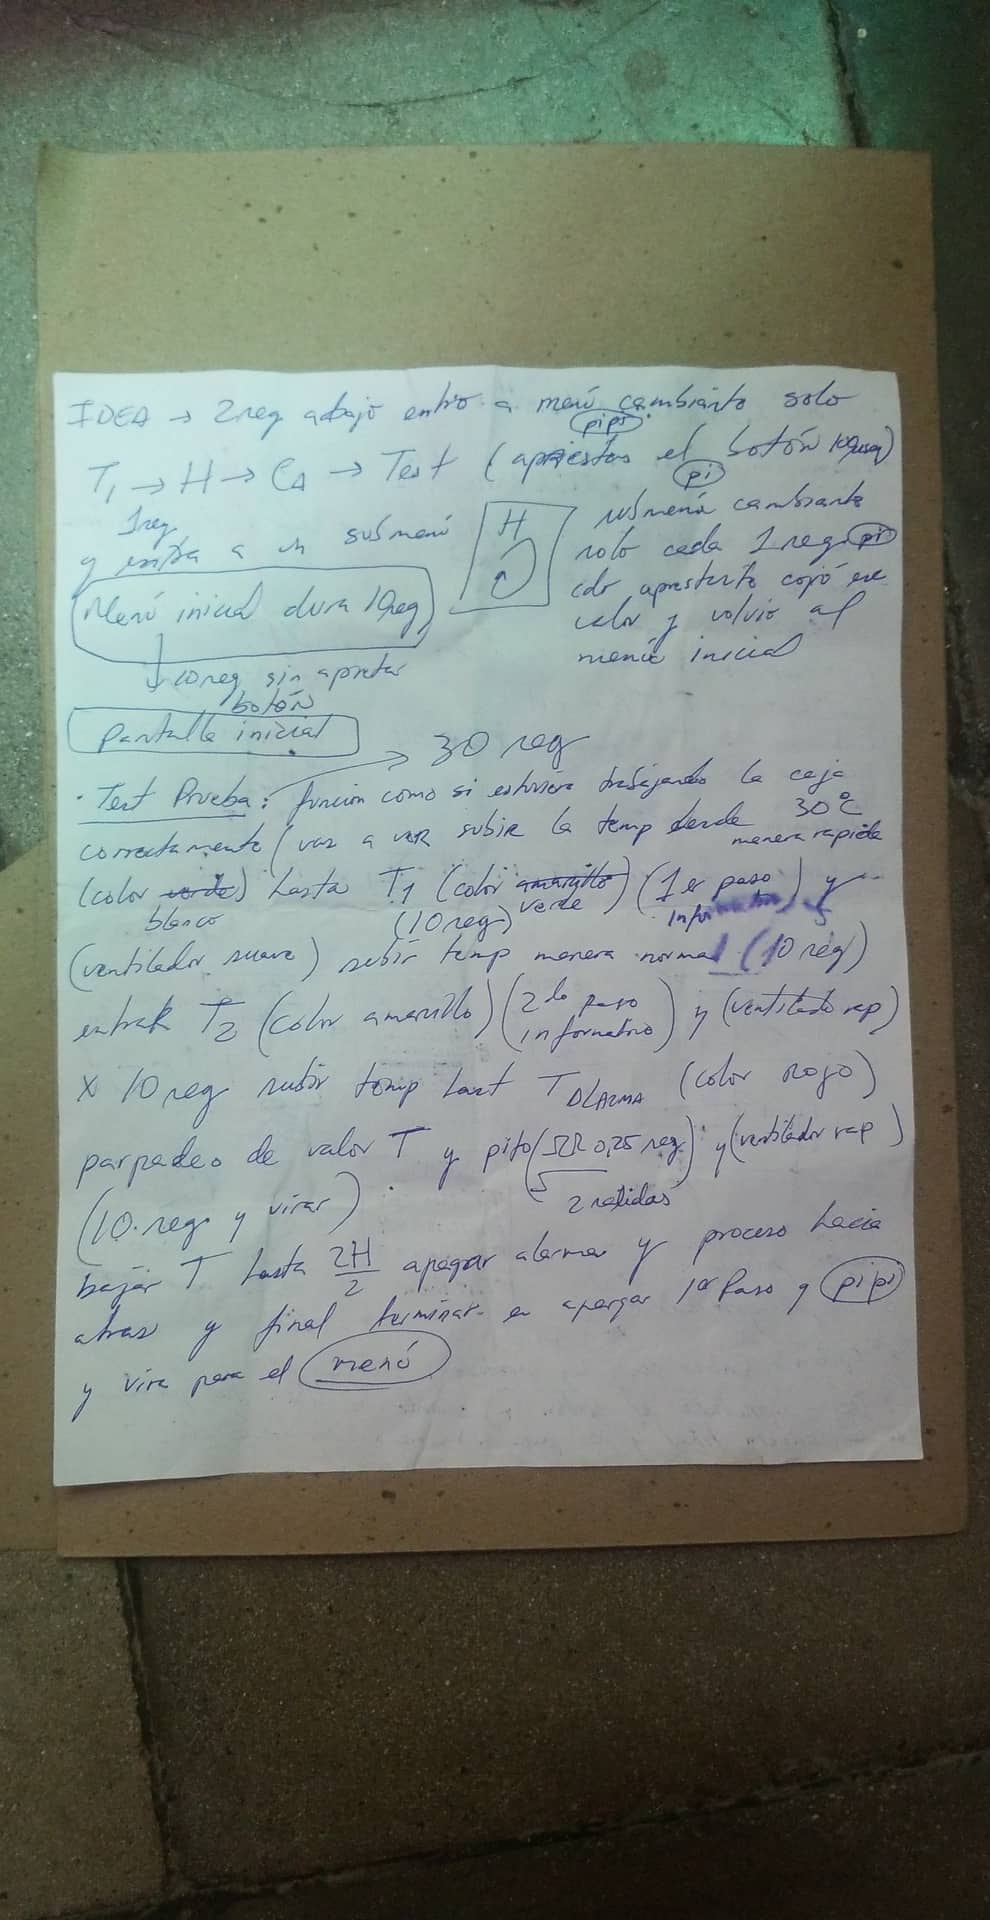 IDEA → 2 seg abajo entro a menú cambiante solo
pipi
T1 → H → CA → Test (aprietas el botón
pi
1 seg
y entra a un submenú
H
submenú cambiante
solo cada 1 seg pi
cdo aprestarte cojó ese
valor y volvio al
menú inicial
Menú inicial dura 10 seg
10 seg sin apretar
botón
Pantalla inicial
→ 30 seg
· Test Prueba: función como si estuviera trabajando la caja
correctamente (vas a ver subir la temp desde 30°C
manera rapida
(color verde) hasta T1 (color amarillo) (1er paso) y
blanco
(10 seg)
verde
(ventilador suave) subir temp manera normal (10 seg)
entrar T2 (color amarillo) (2do paso
informativo) y (ventilado rap)
x 10 seg subir temp hast T ALARMA (color rojo)
parpadeo de valor T y pito ( 0,25 seg) y (ventilador rap)
2 salidas
(10 seg y virar)
bajar T hasta 2H/2 apagar alarma y proceso hacia
atras y final terminar en apagar 1er Paso y pipi
y vira para el menú